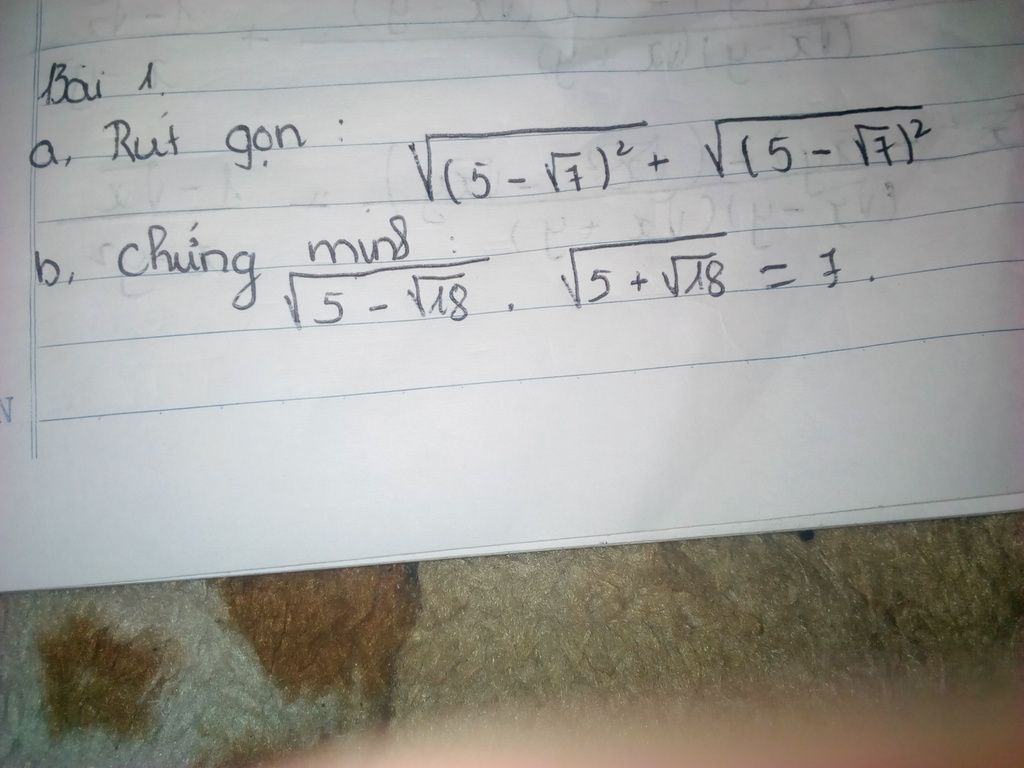 Bài 1.
a, Rút gọn : √(5 - √7)² + √(5 - √7)²
b, Chứng minh :
√5 - √18 . √5 + √18 = 7.